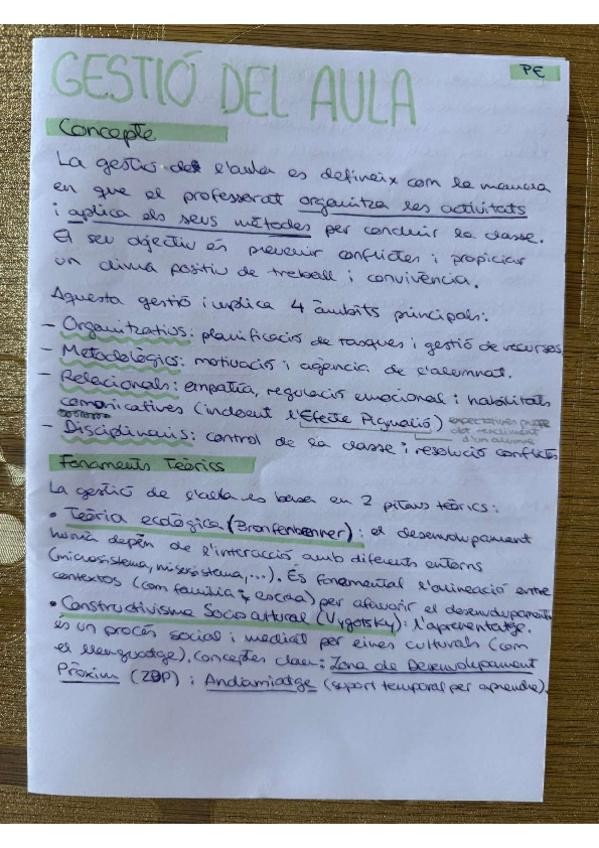 GESTIÓ DEL AULA
PE
Concepte
La gestió de l'aula es defineix com la manera
en que el professorat organitza les activitats
i aplica els seus mètodes per conduir la classe.
El seu objectiu és prevenir conflictes i propiciar
un clima positiu de treball i convivència.
Aquesta gestió implica 4 àmbits principals:
- Organitzatius: planificació de tasques i gestió de recursos
- Metodològics: motivació i agència de l'alumnat.
- Relacionals: empatia, regulació emocional i habilitats
comunicatives (incloent l'Efecte Pigmalió) expectatives
del rendiment
d'un alumne
- Disciplinaris: control de la classe i resolució conflictes
Fonaments Teòrics
La gestió de l'aula es basa en 2 pilars teòrics:
• Teoria ecològica (Bronfenbrenner): el desenvolupament
humà depèn de l'interacció amb diferents entorns
(microsistema, mesosistema,...). És fonamental l'alineació entre
contextos (com família i escola) per afavorir el desenvolupament
• Constructivisme Sociocultural (Vygotsky): l'aprenentatge.
és un procés social i mediat per eines culturals (com
el llenguatge). Conceptes claus: Zona de Desenvolupament
Pròxim (ZDP) i Andamiatge (suport temporal per aprendre).